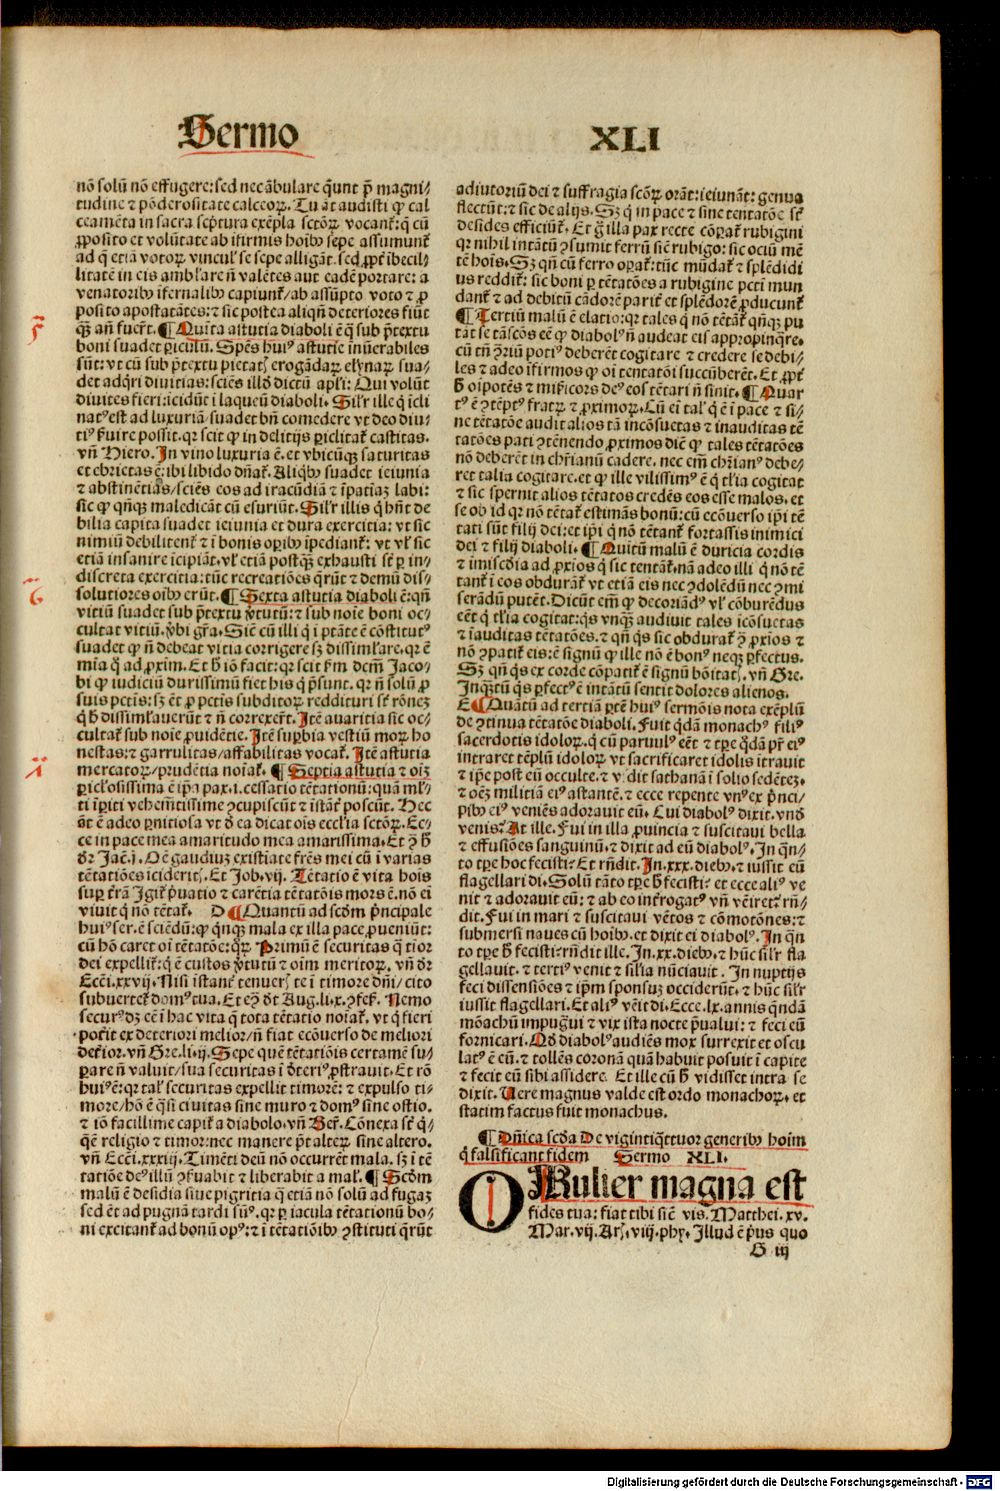 Sermo
XLI
nō solū nō effugere: sed nec ābulare q̄unt p̄ magni⸗
tudine ⁊ pōderositate calceoꝝ. Tu āt audisti ꝙ cal
ceamēta in sacra scp̄tura exēpla sctōꝝ vocant᷑: q̄ cū
ꝓposito et volūtate ab ifirmis hoīb⁹ sepe assumunt᷑
ad q̄ etiā votoꝝ vincul᷑ se sepe alligāt. sed ꝓpt᷑ ībecil⸗
litatē in eis ambl᷑are n̄ valētes aut eadē portare: a
venatorib⁹ ifernalib⁹ capiunt᷑/ab assūpto voto ⁊ ꝓ
posito apostatātes: ⁊ sic postea aliqn̄ deteriores fiūt
qꝫ an̄ fuer̄t. ¶ Quīta astutia diaboli ē q̄ sub p̄textu
boni suadet ꝑiculū. Spēs hui⁹ astutie inūerabiles
sūt: vt cū sub p̄textu pietat᷑ erogādaꝝ elynaꝝ sua⸗
det adq̄ri divitias: sciēs illḋ dictū apl᷑i: Qui volūt
divites fieri: icidūt i laqueū diaboli. Sil᷑r ille q̄ icli
nat⁹ est ad luxuriā suadet bn̄ comedere vt deo diu⸗
ti⁹ ẜuire possit. qꝛ scit ꝙ in delitijs ꝑiclitat᷑ castitas.
vn̄ Hiero. In vino luxuria ē. et vbicūqꝫ saturitas
et ebrietas ē: ibi libido dn̄at᷑. Aliqb⁹ suadet ieiunia
⁊ abstinētias/sciēs eos ad iracūdiā ⁊ īpatiaꝫ labi:
sic ꝙ qn̄qꝫ maledicāt cū esuriūt. Sil᷑r illis q̄ hn̄t de
bilia capita suadet ieiunia et dura exercitia: vt sic
nimiū debilitent᷑ ⁊ i bonis oꝑib⁹ īpediant᷑: vt vl᷑ sic
etiā insanire īcipiāt. vl᷑ etiā postqꝫ exhausti st᷑ ꝑ in⸗
discreta exercitia: tūc recreatiōes q̄rūt ⁊ demū dis⸗
solutiores oīb⁹ erūt. ¶ Sexta astutia diaboli ē: qn̄
vitiū suadet sub p̄textu v̄tutū: ⁊ sub noīe boni oc⸗
cultat vitiū. v̄bi gr̄a. Sic̄ cū illi q̄ i ptāte ē cōstitut⁹
suadet ꝙ n̄ debeat vitia corrigere sꝫ dissiml᷑are. qꝛ ē
mīa qḋ ad ꝓxim. Et h̄ iō facit: qꝛ scit ẜm dcm̄ Jaco⸗
bi ꝙ iudiciū durissimū fiet his q̄ p̄sunt. qꝛ n̄ solū ꝓ
suis pctīs: sꝫ ēt ꝓ pctīs subditoꝝ reddituri st᷑ rōneꝫ
q̄ h̄ dissiml᷑auerūt ⁊ n̄ correxer̄t. Itē avaritia sic oc⸗
cultat᷑ sub noīe ꝓuidētie. Itē suꝑbia vestiū moꝝ ho
nestas: ⁊ garrulitas/affabilitas vocat᷑. Itē astutia
mercatoꝝ/prudētia noīat᷑. ¶ Septīa astutia ⁊ oīꝫ
ꝑicl᷑osissima ē ip̄a pax. i. cessatio tētationū: quā ml᷑⸗
ti īꝑiti vehemētissime ↄcupiscūt ⁊ īstāt᷑ poscūt. Hec
āt ē adeo ꝑnitiosa vt ḋ ea dicat oīs eccl᷑ia sctōꝝ. Ec⸗
ce in pace mea amaritudo mea amarissima. Et ꝯ h̄
dr̄ Jac̄. j. Oē gaudiuꝫ existīate fr̄es mei cū i varias
tētatiōes iciderit᷑. Et Job. vij. Tētatio ē vita hoīs
suꝑ t᷑rā Igit᷑ p̄uatio ⁊ carētia tētatōis mors ē. nō eī
vivit q̄ nō tētat᷑. D ¶ Quantū ad scḋm p̄ncipale
hui⁹ ser. ē sciēdū: ꝙ q̄nqꝫ mala ex illa pace ꝓueniūt:
cū hō caret oī tētatōe: qꝝ Primū ē securitas q̄ tīor
dei expellit᷑: q̄ ē custos v̄tutū ⁊ oīm meritoꝝ. vn̄ dr̄
Ecci. xxvij. Nisi īstant᷑ tenuer᷑ te i timore dn̄i/cito
subuertet᷑ dom⁹ tua. Et ꝯ dt Aug. li. x. ꝯfeſ. Nemo
secur⁹ dꝫ eē i hac vita q̄ tota tētatio noīat᷑. vt q̄ fieri
pot̄it ex deteriori melior/n̄ fiat ecōuerso de meliori
det᷑ior. vn̄ Gre. li. ij. Sepe quē tētatiōis certamē su⸗
ꝑare n̄ valuit/sua securitas i det᷑i⁹ ꝓstravit. Et rō
hui⁹ ē: qꝛ tal᷑ securitas expellit timorē: ⁊ expulso ti⸗
more/hō ē qsi civitas sine muro ⁊ dom⁹ sine ostio.
⁊ iō facillime capit᷑ a diabolo. vn̄ Beꝛ̄. Cōnexa st᷑ q̄⸗
qē religio ⁊ timor: nec manere p̄t alteꝝ sine altero.
vn̄ Ecci. xxxiij. Timēti deū nō occurrēt mala. sꝫ i tē
tatiōe de⁹ illū ꝯẜuabit ⁊ liberabit a mal᷑. ¶ Scḋm
malū ē desidia siue pigritia q̄ etiā nō solū ad fugaꝫ
sed ēt ad pugnā tardi sūt. qꝛ ꝑ iacula tētationū bo⸗
ni excitant᷑ ad bonū op⁹: ⁊ i tētatiōib⁹ ꝯstituti q̄rūt
adiutoriū dei ⁊ suffragia scōꝝ. orāt: ieiunāt: genua
flectūt: ⁊ sic de alijs. Sꝫ q̄ in pace ⁊ sine tentatōe st᷑
desides efficiūt᷑. Et g̊ illa pax recte cōꝑat᷑ rubigini
qꝛ nihil intātū ꝯsumit ferrū sic̄ rubigo: sic ociū mē
tē hoīs. Sꝫ qn̄ cū ferro oꝑat᷑: tūc mūdat᷑ ⁊ splēdidi
us reddit᷑: sic boni ꝑ tētatōes a rubigine pcti mun
dant᷑ ⁊ ad debitū cādorē parit᷑ et splēdorē ꝓducunt᷑
¶ Tertiū malū ē elatio: qꝛ tales q̄ nō tētāt᷑ qn̄qꝫ pu
tāt se tā scōs eē ꝙ diabol⁹ n̄ audeat eis appropinq̄re.
cū tn̄ ꝯriū poti⁹ deberēt cogitare ⁊ credere se debi⸗
les ⁊ adeo ifirmos ꝙ oī tentatōi succūberēt. Et ꝓpt᷑
h̄ oīpotēs ⁊ mīſicors de⁹ eos tētari n̄ sinit. ¶ Quar
t⁹ ē ꝯtēpt⁹ fratꝝ ⁊ ꝓximoꝝ. Cū eī tal᷑ q̄ ē i pace ⁊ si⸗
ne tētatōe audit alios tā incōsuetas ⁊ inauditas tē
tatōes pati ꝯtēnendo ꝓximos diēs ꝙ tales tētatōes
nō deberēt in chr̄ianū cadere. nec em̄ chr̄ian⁹ debe⸗
ret talia cogitare. et ꝙ ille vilissim⁹ ē q̄ tl᷑ia cogitat
⁊ sic spernit alios tētatos credēs eos esse malos. et
se ob id qꝛ nō tētat᷑ estimās bonū: cū ecōuerso ip̄i tē
tati sūt filij dei: et ip̄i q̄ nō tētant᷑ fortassis inimici
dei ⁊ filij diaboli. ¶ Quītū malū ē duricia cordis
⁊ imiscḋia ad ꝓxīos q̄ sic tentāt᷑. nā adeo illi q̄ nō tē
tant᷑ i eos obdurāt᷑ vt etiā eis nec ꝯdolēdū nec ꝯmi
serādū putēt. Dicūt em̄ ꝙ decoriād⁹ vl᷑ cōburēdus
eēt q̄ tl᷑ia cogitat: q̄s vnqꝫ audiuit tales icōsuetas
⁊ iauditas tētatōes. ⁊ qn̄ q̄s sic obdurat᷑ ꝯ ꝓxīos ⁊
nō ꝯpatit᷑ eis: ē signū ꝙ ille nō ē bon⁹ neqꝫ ꝑfectus.
Sꝫ qn̄ q̄s ex corde cōpatit᷑ ē signū bōitat᷑. vn̄ Gre.
Inqꝫtū q̄s ꝑfect⁹ ē intātū sentit dolores alienos.
E ¶ Quātū ad tertiā ꝑtē hui⁹ sermōis nota exēplū
de ꝯtinua tētatōe diaboli. Fuit q̄dā monach⁹ fili⁹
sacerdotis idoloꝝ. q̄ cū paruul⁹ eēt ⁊ tꝑe q̄dā pr̄ ei⁹
intraret tēplū idoloꝝ vt sacrificaret idolis itravit
⁊ ip̄e post eū occulte. ⁊ vidit sathanā i solio sedēteꝫ.
⁊ oēꝫ militiā ei⁹ astantē. ⁊ ecce repente vn⁹ ex p̄nci⸗
pib⁹ ei⁹ veniēs adoravit eū. Cui diabol⁹ dixit. vnḋ
venis? At ille. Fui in illa ꝓuincia ⁊ suscitavi bella
⁊ effusiōes sanguinū. ⁊ dixit ad eū diabol⁹. In qn̄⸗
to tꝑe hoc fecisti? Et rn̄dit. In. xxx. dieb⁹. ⁊ iussit eū
flagellari di. Solū tāto tꝑe h̄ fecisti? et ecce ali⁹ ve
nit ⁊ adoravit eū: ⁊ ab eo int᷑rogat⁹ vn̄ vēiret? rn̄⸗
dit. Fui in mari ⁊ suscitavi vētos ⁊ cōmotōnes: ⁊
submersi naues cū hoīb⁹. et dixit ei diabol⁹. In qn̄
to tꝑe h̄ fecisti? rn̄dit ille. In. xx. dieb⁹. ⁊ hūc sil᷑r fla
gellauit. ⁊ terti⁹ venit ⁊ sil᷑ia nūciavit. In nuptijs
feci dissensiōes ⁊ ip̄m sponsuꝫ occiderūt. ⁊ hūc sil᷑r
iussit flagellari. Et ali⁹ vēit di. Ecce. lx. annis qn̄dā
mōachū impugn̄ui ⁊ vix ista nocte p̄ualui: ⁊ feci eū
fornicari. Qḋ diabol⁹ audiēs mox surrexit et oscu
lat⁹ ē eū. ⁊ tollēs coronā quā habuit posuit i capite
⁊ fecit eū sibi assidere. Et ille cū h̄ vidisset intra se
dixit. Uere magnus valde est ordo monachoꝝ. et
statim factus fuit monachus.
¶ Dn̄ica scḋa De viginti q̄ttuor generib⁹ hoīm
q̄ falsificant fidem Sermo XLI.
O Mulier magna est
fides tua: fiat tibi sic̄ vis. Matthei. xv.
Mar. vij. Arꝫ. viij. phy. Illud ē p̄us quo
G iij
Digitalisierung gefördert durch die Deutsche Forschungsgemeinschaft - DFG